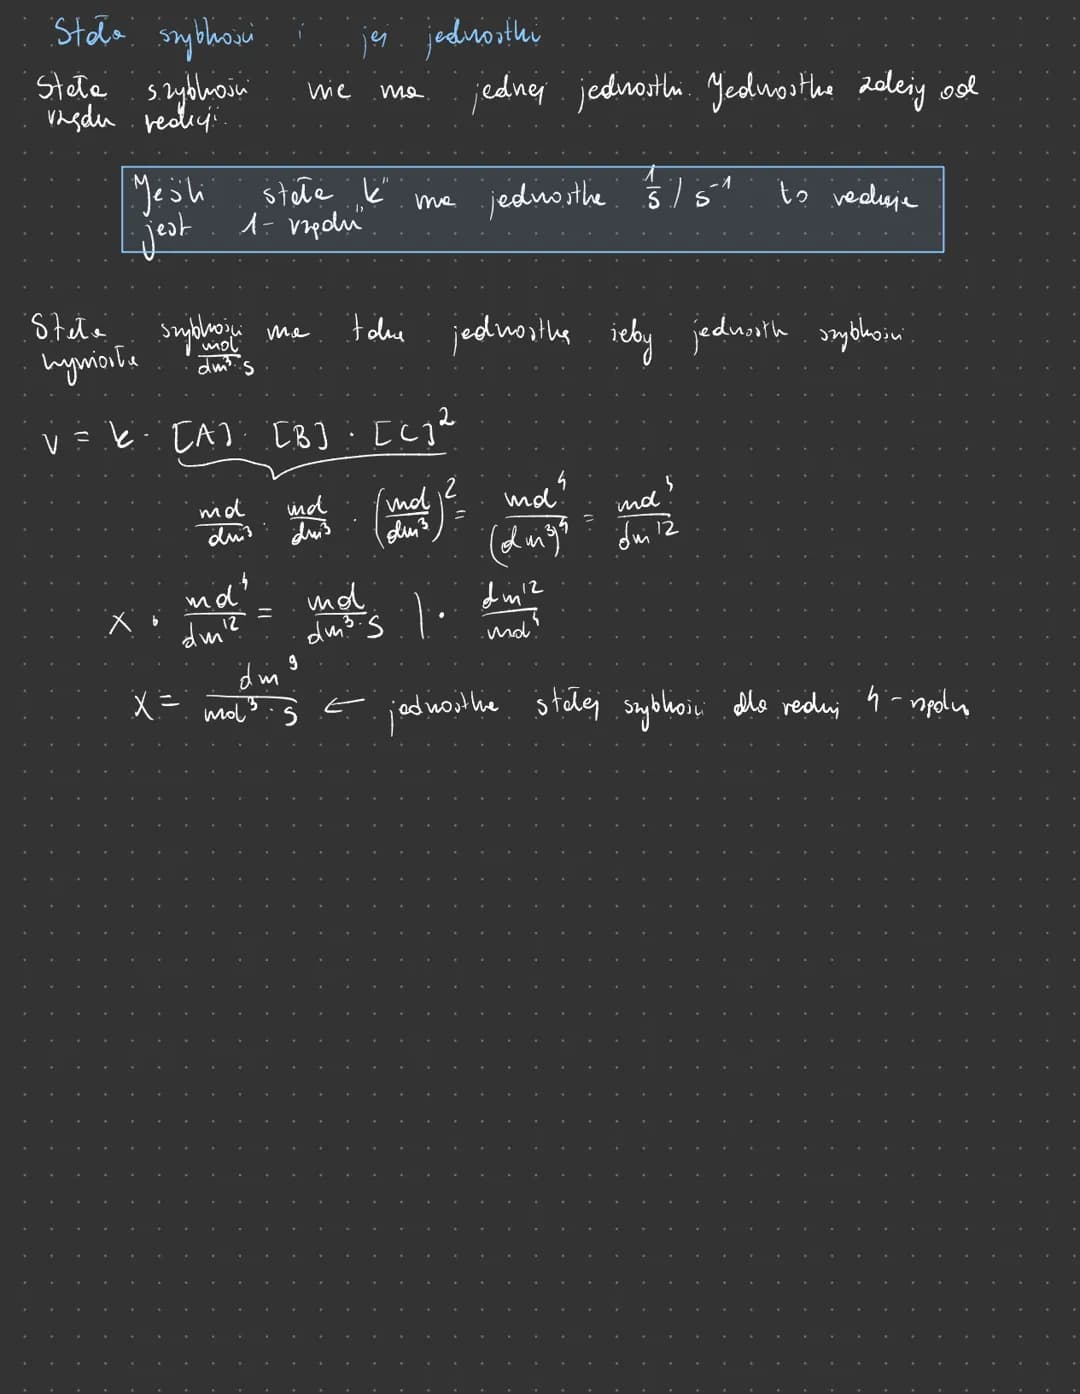 Stała szybkości i jej jednostki
Stała szybkości nie ma jednej jednostki. Jednostka zależy od
rzędu reakcji.
Jeśli stała "k" ma jednostkę 1/s / s⁻¹ to reakcja
jest 1-rzędu
Stała szybkości ma taką jednostkę żeby jednostk szybkości
wynosiła mol/dm³·s
v = k · [A] · [B] · [C]²
mol/dm³ · mol/dm³ · (mol/dm³)² = mol⁴/(dm³)⁴ = mol⁴/dm¹²
x · mol⁴/dm¹² = mol/dm³·s | · dm¹²/mol⁴
x = dm⁹/mol³·s ← jednostka stałej szybkości dla reakcji 4-rzędu